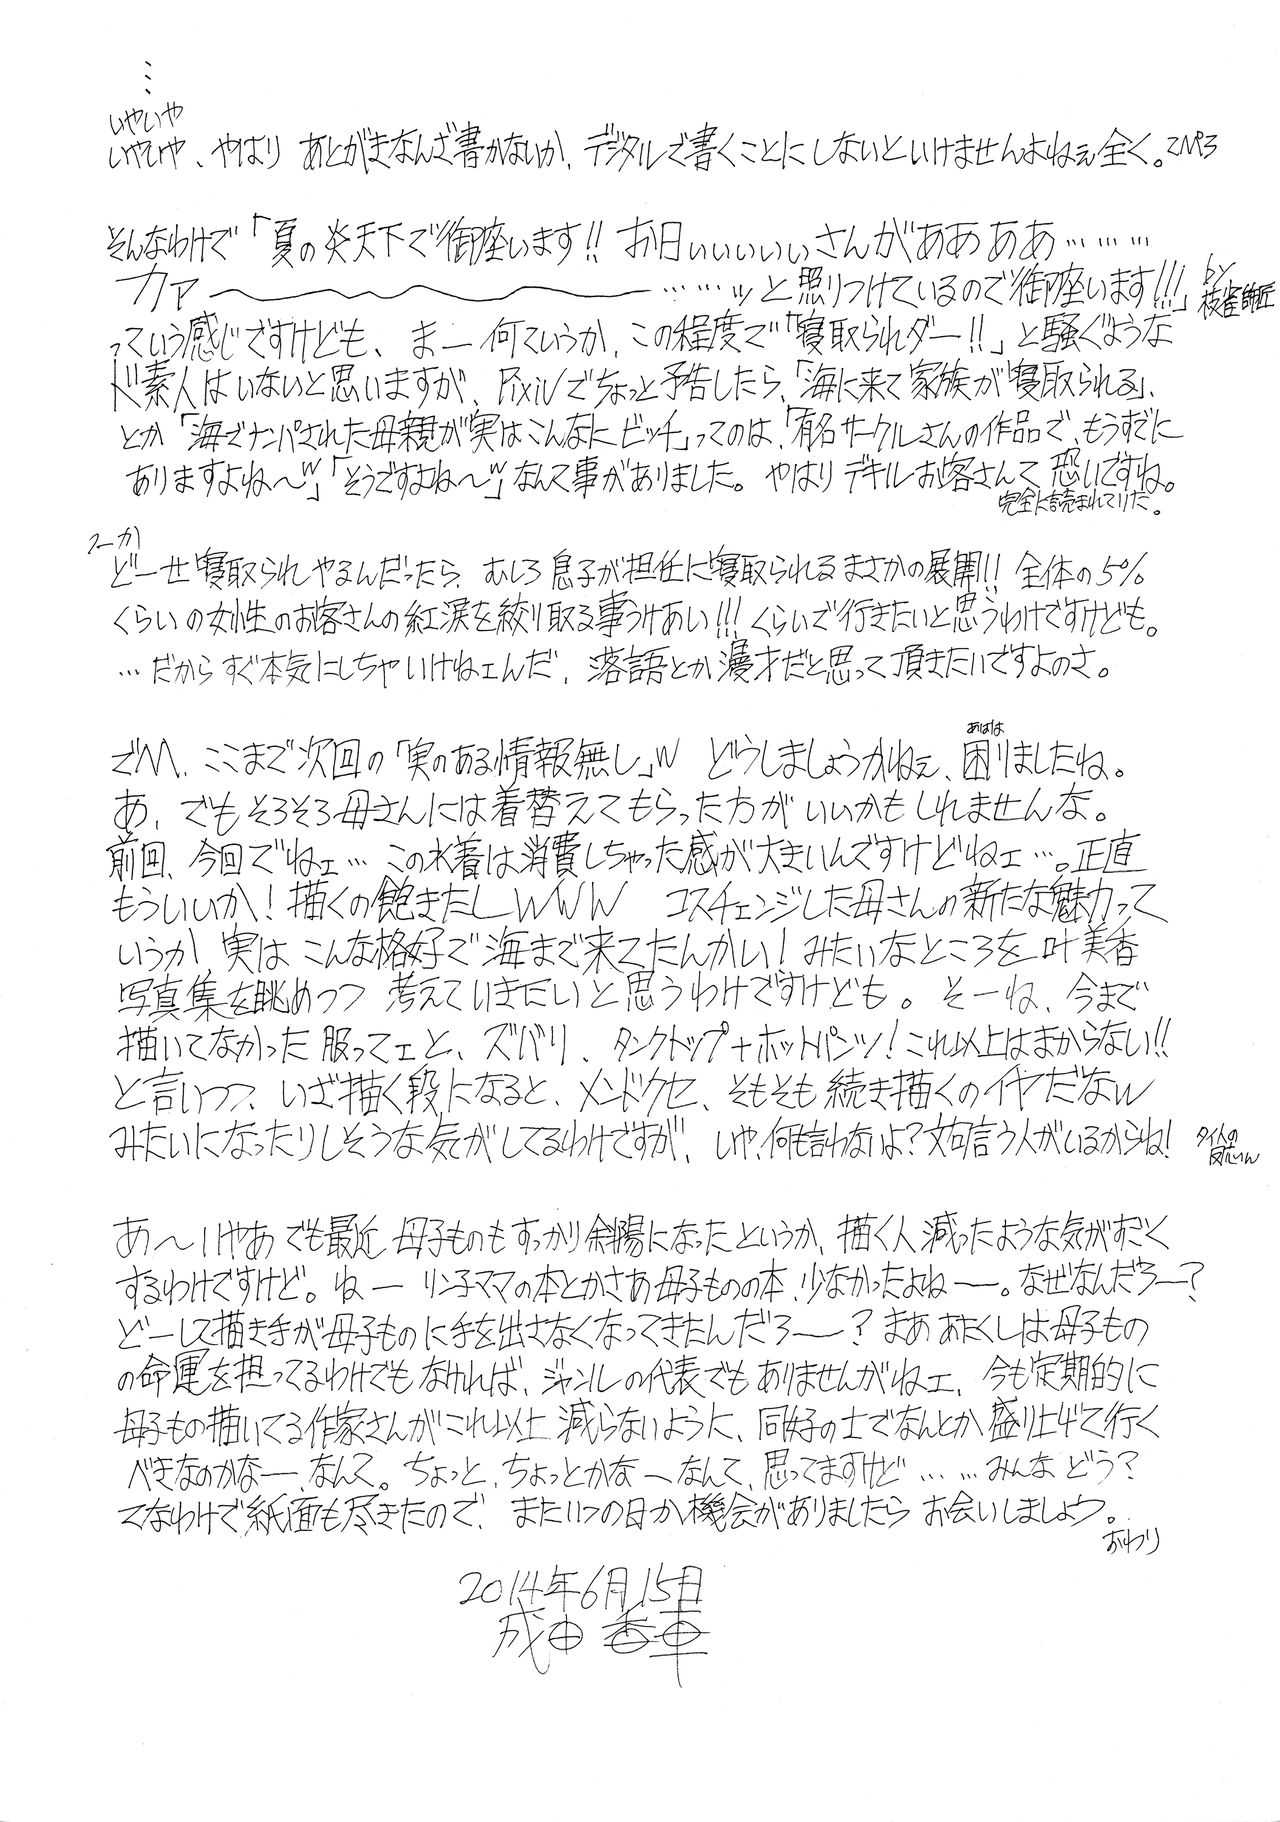 …
いやいや
いやいや、やはり あとがきなんざ書かないか、デジタルで書くことにしないといけませんよねぇ全く。
そんなわけで「夏の炎天下で御座います!! お日ぃぃぃぃぃさんがああああ………
カァ ……ッと照りつけているので御座います!!!」by枝雀師匠
っていう感じですけども、まー何ていうか、この程度で「寝取られダー!!」と騒ぐような
ド素人はいないと思いますが、Pixivでちょっと予告したら、「海に来て家族が寝取られる」、
とか「海でナンパされた母親が実はこんなにビッチ」ってのは、「有名サークルさんの作品で、もうすでに
ありますよね〜w」「そうですよね〜w」なんて事がありました。やはりデキルお客さんて恐いですね。
完全に読まれてりだ。
つーか
どーせ寝取られやるんだったら、むしろ息子が担任に寝取られるまさかの展開!! 全体の5%
くらいの女性のお客さんの紅涙を絞り取る事うけあい!!! くらいで行きたいと思うわけですけども。
…だからすぐ本気にしちゃいけねェんだ、落語とか漫才だと思って頂きたいですよのさ。
あはは
でハハ、ここまで次回の「実のある情報無し」w どうしましょうかねぇ、困りましたね。
あ、でもそろそろ母さんには着替えてもらった方がいいかもしれませんな。
前回、今回でねェ…この水着は消費しちゃった感が大きいんですけどねェ…。正直
もういいか!描くの飽きたしwww コスチェンジした母さんの新たな魅力って
いうか、実はこんな格好で海まで来てたんかい!みたいなところを叶美香
写真集を眺めつつ 考えていきたいと思うわけですけども。そーね、今まで
描いてなかった服ってェと、ズバリ、タンクトップ+ホットパンツ!これ以上はまからない!!
と言いつつ、いざ描く段になると、メンドクセ、そもそも続き描くのイヤだなw
みたいになったりしそうな気がしてるわけですが、いや、何も言わないよ?文句言う人がいるからね!
あ〜いやあでも最近 母子ものもすっかり斜陽になったというか、描く人減ったような気がすごく
するわけですけど。ねー リン子ママの本とかさあ母子ものの本、少なかったよねー。なぜなんだろー?
どーして描き手が母子ものに手を出さなくなってきたんだろー?まああたくしは母子もの
の命運を担ってるわけでもなければ、ジャンルの代表でもありませんがねェ、今も定期的に
母子もの描いてる作家さんがこれ以上減らないように、同好の士でなんとか盛り上げて行く
べきなのかなー、なんて。ちょっと、ちょっとかなーなんて、思ってますけど……みんなどう?
てなわけで紙面も尽きたので、またいつの日か機会がありましたらお会いしましょう。
おわり
2014年6月15日
成田香車